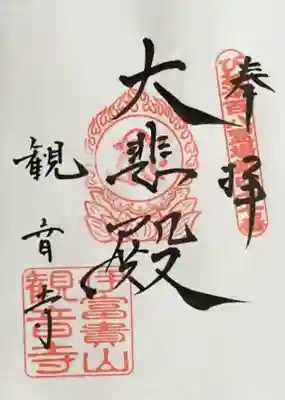 奉拝
大悲殿
観音寺
富貴山
観音寺